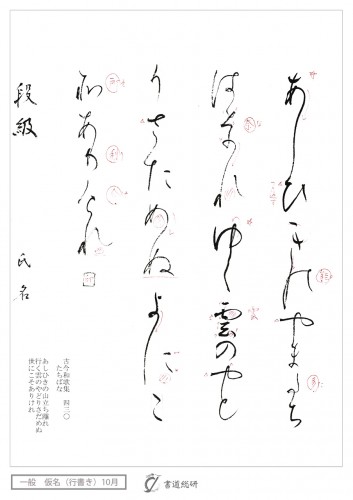 あしひきのやまたち
はなれゆく雲のやと
りさためぬよにこ
所ありけれ
段級 氏名
古今和歌集 四三〇
たちばな
あしひきの山立ち離れ
行く雲のやどりさだめぬ
世にこそありけれ
一般 仮名（行書き）10月
書道総研